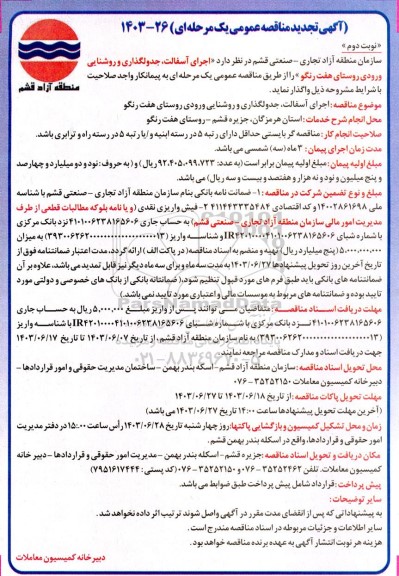 (آگهی تجدید مناقصه عمومی یک مرحله ای) ۲۶-۱۴۰۳
«نوبت دوم»
سازمان منطقه آزاد تجاری -صنعتی قشم در نظر دارد «اجرای آسفالت، جدولگذاری و روشنایی
ورودی روستای هفت رنگو» را از طریق مناقصه عمومی یک مرحله ای به پیمانکار واجد صلاحیت
با شرایط مشروحه ذیل واگذار نماید.
منطقه آزاد قشم
موضوع مناقصه: اجرای آسفالت، جدولگذاری و روشنایی ورودی روستای هفت رنگو
محل انجام شرح خدمات: استان هرمزگان، جزیره قشم -روستای هفت رنگو
صلاحیت انجام کار: مناقصه گر بایستی حداقل دارای رتبه ۵ در رسته ابنیه و/یا رتبه ۵ در رسته راه و ترابری باشد.
مدت زمان اجرای پیمان: ۳ ماه (سه) شمسی می باشد.
مبلغ اولیه پیمان: مبلغ اولیه پیمان برابر است (به عدد: ۹۲،۴۰۵،۰۹۹،۷۲۳ ریال) و (به حروف: نود و دو میلیارد و چهارصد
و پنج میلیون و نود و نه هزار و هفتصد و بیست و سه ریال) می باشد.
مبلغ و نوع تضمین شرکت در مناقصه: ۱- ضمانت نامه بانکی بنام سازمان منطقه آزاد تجاری -صنعتی قشم با شناسه
ملی ۱۴۰۰۲۸۶۱۶۹۸ و کد اقتصادی ۴۱۱۴۴۳۳۵۴۸۴ ۲- فیش واریزی نقدی (و یا نامه بلوکه مطالبات قطعی از طرف
مدیریت امور مالی سازمان منطقه آزاد تجاری -صنعتی قشم) به حساب جاری ۴۱۰۱۰۰۶۲۳۸۱۶۵۶۰۶ نزد بانک مرکزی
با شماره شبای IR۴۲۰۱۰۰۰۰۴۱۰۱۰۰۶۲۳۸۱۶۵۶۰۶ و شناسه واریز (
) به میزان
۵،۰۰۰،۰۰۰،۰۰۰ (پنج میلیارد ریال) تهیه و منضم به اسناد مناقصه (در پاکت الف) ارائه گردد. مدت اعتبار ضمانتنامه فوق از
تاریخ آخرین روز تحویل پیشنهادها ۱۴۰۳/۰۶/۲۷ به مدت سه ماه و برای سه ماه دیگر نیز قابل تمدید می باشد. علاوه بر آن
ضمانتنامه های بانکی باید طبق فرم های مورد قبول تنظیم شود. (ضمانتنامه بانکی از بانک های خصوصی و دولتی مورد
تایید بوده و ضمانتنامه های مربوط به موسسات مالی و اعتباری مورد تایید نمی باشد.)
مهلت دریافت اسناد مناقصه: متقاضیان می توانند پس از واریز مبلغ ۵،۰۰۰،۰۰۰ ریال به حساب جاری
۴۱۰۱۰۰۶۲۳۸۱۶۵۶۰۶ نزد بانک مرکزی با شماره شبای IR۴۲۰۱۰۰۰۰۴۱۰۱۰۰۶۲۳۸۱۶۵۶۰۶ با شناسه واریز
به نام سازمان منطقه آزاد قشم، از تاریخ ۱۴۰۳/۰۶/۰۷ تا تاریخ ۱۴۰۳/۰۶/۱۷
جهت دریافت اسناد و مدارک مناقصه مراجعه نمایند.
محل تحویل اسناد مناقصه: سازمان منطقه آزاد قشم -اسکله بندر بهمن -ساختمان مدیریت حقوقی و امور قراردادها -
دبیرخانه کمیسیون معاملات ۳۵۲۵۲۱۵۰-۰۷۶
مهلت تحویل پاکات مناقصه: از تاریخ ۱۴۰۳/۰۶/۱۸ تا ۱۴۰۳/۰۶/۲۷
(آخرین مهلت تحویل پیشنهادها ساعت ۱۴:۰۰ تاریخ ۱۴۰۳/۰۶/۲۷ می باشد)
زمان و محل تشکیل کمیسیون و بازگشایی پاکتها: روز چهارشنبه تاریخ ۱۴۰۳/۰۶/۲۸ رأس ساعت ۱۵:۰۰ در دفتر مدیریت
امور حقوقی و قراردادها، واقع در اسکله بندر بهمن قشم.
مکان دریافت و تحویل اسناد مناقصه: جزیره قشم -اسکله بندر بهمن -مدیریت حقوقی و قراردادها -دبیر خانه
کمیسیون معاملات. تلفن ۳۵۲۵۲۴۶۲-۰۷۶ و ۳۵۲۵۲۱۵۰-۰۷۶ (کد پستی: ۷۹۵۱۶۱۷۴۴۴)
پیش پرداخت: قرارداد شامل پیش پرداخت طبق ضوابط می باشد.
سایر توضیحات:
به پیشنهاداتی که پس از انقضای مدت مقرر در آگهی واصل شوند ترتیب اثر داده نخواهد شد.
سایر اطلاعات و جزئیات مربوطه در اسناد مناقصه مندرج است.
هزینه هر نوبت انتشار آگهی به عهده برنده مناقصه خواهد بود.
دبیرخانه کمیسیون معاملات